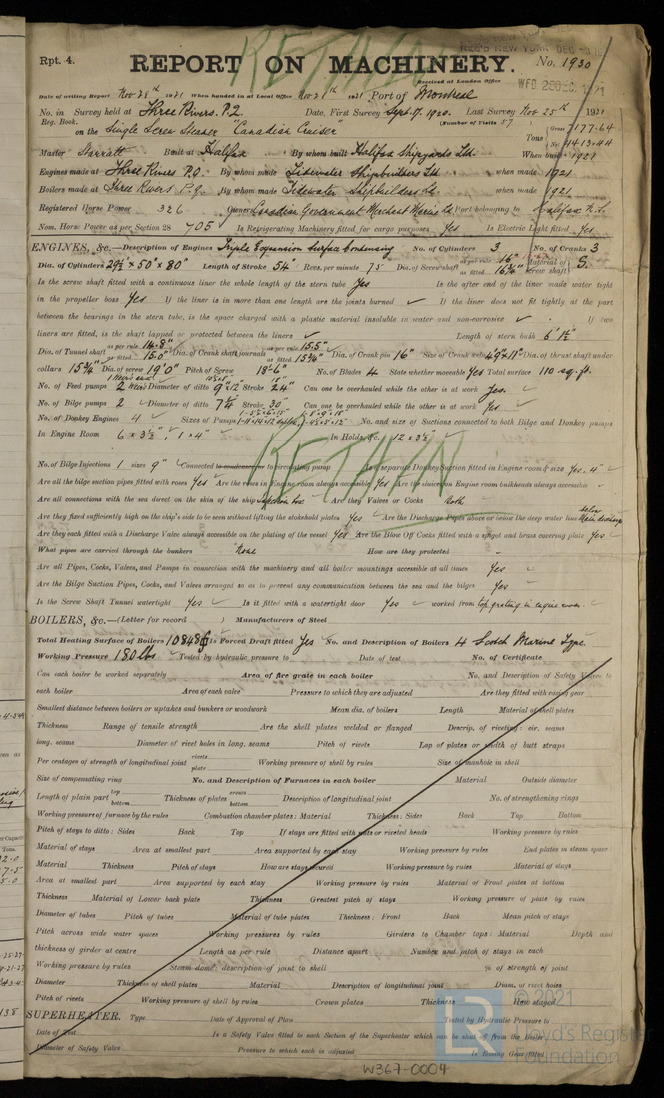 RETAIN
Rpt. 4.
REPORT ON MACHINERY.
No. 1930
REC'D NEW YORK DEC
Received at London Office
WED. 28 DEC. 1921
Date of writing Report Nov 28th 1921 When handed in at Local Office Nov 28th 1921 Port of Montreal
No. in Survey held at Three Rivers. P.Q. Date, First Survey Sept. 17. 1920. Last Survey Nov 25th 1921
Reg. Book. (Number of Visits 57
on the Single Screw Steamer "Canadian Cruiser" Tons Gross 7177.64
Net
Master Starratt Built at Halifax By whom built Halifax Shipyards Ltd. When built 1921
Engines made at Three Rivers P.Q. By whom made Tidewater Shipbuilders Ltd. when made 1921
Boilers made at Three Rivers P.Q. By whom made Tidewater Shipbuilders Ltd. when made 1921
Registered Horse Power 326 Owners Canadian Government Merchant Marine Ltd Port belonging to Halifax N.S.
Nom. Horse Power as per Section 28 705 Is Refrigerating Machinery fitted for cargo purposes Yes Is Electric Light fitted Yes
ENGINES, &c.—Description of Engines Triple Expansion Surface Condensing No. of Cylinders 3 No. of Cranks 3
Dia. of Cylinders 29½" x 50" x 80" Length of Stroke 54" Revs. per minute 75 Dia. of Screw shaft as per rule 16" as fitted 16¾" Material of screw shaft S.
Is the screw shaft fitted with a continuous liner the whole length of the stern tube Yes Is the after end of the liner made water tight
in the propeller boss Yes If the liner is in more than one length are the joints burned ✓ If the liner does not fit tightly at the part
between the bearings in the stern tube, is the space charged with a plastic material insoluble in water and non-corrosive ✓ If two
liners are fitted, is the shaft lapped or protected between the liners ✓ Length of stern bush 6' 1½"
Dia. of Tunnel shaft as per rule 14.8" as fitted 15.0" Dia. of Crank shaft journals as per rule 15.5" as fitted 15¾" Dia. of Crank pin 16" Size of Crank webs Dia. of thrust shaft under
collars 15¾" Dia. of screw 19' 0" Pitch of Screw 18'-6" No. of Blades 4 State whether moveable Yes Total surface 110 sq. ft.
No. of Feed pumps 2 Diameter of ditto Stroke 24" Can one be overhauled while the other is at work Yes.
No. of Bilge pumps 2 Diameter of ditto 7¼ Stroke 30" Can one be overhauled while the other is at work Yes
No. of Donkey Engines 4 Sizes of Pumps No. and size of Suctions connected to both Bilge and Donkey pumps
In Engine Room 6 x 3½", 1 x 4" In Holds, &c. 12 x 3½"
RETAIN
No. of Bilge Injections 1 sizes 9" Connected to condenser or to circulating pump Is a separate Donkey Suction fitted in Engine room & size Yes. 4"
Are all the bilge suction pipes fitted with roses Yes Are the roses in Engine room always accessible Yes Are the sluices on Engine room bulkheads always accessible
Are all connections with the sea direct on the skin of the ship Are they Valves or Cocks Both
Are they fixed sufficiently high on the ship's side to be seen without lifting the stokehold plates Yes Are the Discharge Pipes above or below the deep water line below Main discharge
Are they each fitted with a Discharge Valve always accessible on the plating of the vessel Yes Are the Blow Off Cocks fitted with a spigot and brass covering plate Yes
What pipes are carried through the bunkers None How are they protected -
Are all Pipes, Cocks, Valves, and Pumps in connection with the machinery and all boiler mountings accessible at all times Yes
Are the Bilge Suction Pipes, Cocks, and Valves arranged so as to prevent any communication between the sea and the bilges Yes
Is the Screw Shaft Tunnel watertight Yes Is it fitted with a watertight door Yes worked from top grating in engine room.
BOILERS, &c.—(Letter for record ) Manufacturers of Steel
Total Heating Surface of Boilers 10848 Is Forced Draft fitted Yes No. and Description of Boilers 4 Scotch Marine Type.
Working Pressure 180 lbs Tested by hydraulic pressure to Date of test No. of Certificate
Can each boiler be worked separately Area of fire grate in each boiler No. and Description of Safety Valves to
each boiler Area of each valve Pressure to which they are adjusted Are they fitted with easing gear
Smallest distance between boilers or uptakes and bunkers or woodwork Mean dia. of boilers Length Material of shell plates
Thickness Range of tensile strength Are the shell plates welded or flanged Descrip. of riveting: cir. seams
long. seams Diameter of rivet holes in long. seams Pitch of rivets Lap of plates or width of butt straps
Per centages of strength of longitudinal joint rivets plate Working pressure of shell by rules Size of manhole in shell
Size of compensating ring No. and Description of Furnaces in each boiler Material Outside diameter
Length of plain part top bottom Thickness of plates crown bottom Description of longitudinal joint No. of strengthening rings
Working pressure of furnace by the rules Combustion chamber plates: Material Thickness: Sides Back Top Bottom
Pitch of stays to ditto: Sides Back Top If stays are fitted with nuts or riveted heads Working pressure by rules
Material of stays Area at smallest part Area supported by each stay Working pressure by rules End plates in steam space
Material Thickness Pitch of stays How are stays secured Working pressure by rules Material of stays
Area at smallest part Area supported by each stay Working pressure by rules Material of Front plates at bottom
Thickness Material of Lower back plate Thickness Greatest pitch of stays Working pressure of plate by rules
Diameter of tubes Pitch of tubes Material of tube plates Thickness: Front Back Mean pitch of stays
Pitch across wide water spaces Working pressures by rules Girders to Chamber tops: Material Depth and
thickness of girder at centre Length as per rule Distance apart Number and pitch of stays in each
Working pressure by rules Steam dome: description of joint to shell % of strength of joint
Diameter Thickness of shell plates Material Description of longitudinal joint Diam. of rivet holes
Pitch of rivets Working pressure of shell by rules Crown plates Thickness How stayed
SUPERHEATER. Type Date of Approval of Plan Tested by Hydraulic Pressure to
Date of Test Is a Safety Valve fitted to each Section of the Superheater which can be shut off from the Boiler
Diameter of Safety Valve Pressure to which each is adjusted Is Easing Gear fitted
W367-0004
© 2021
Lloyd's Register
Foundation
LR